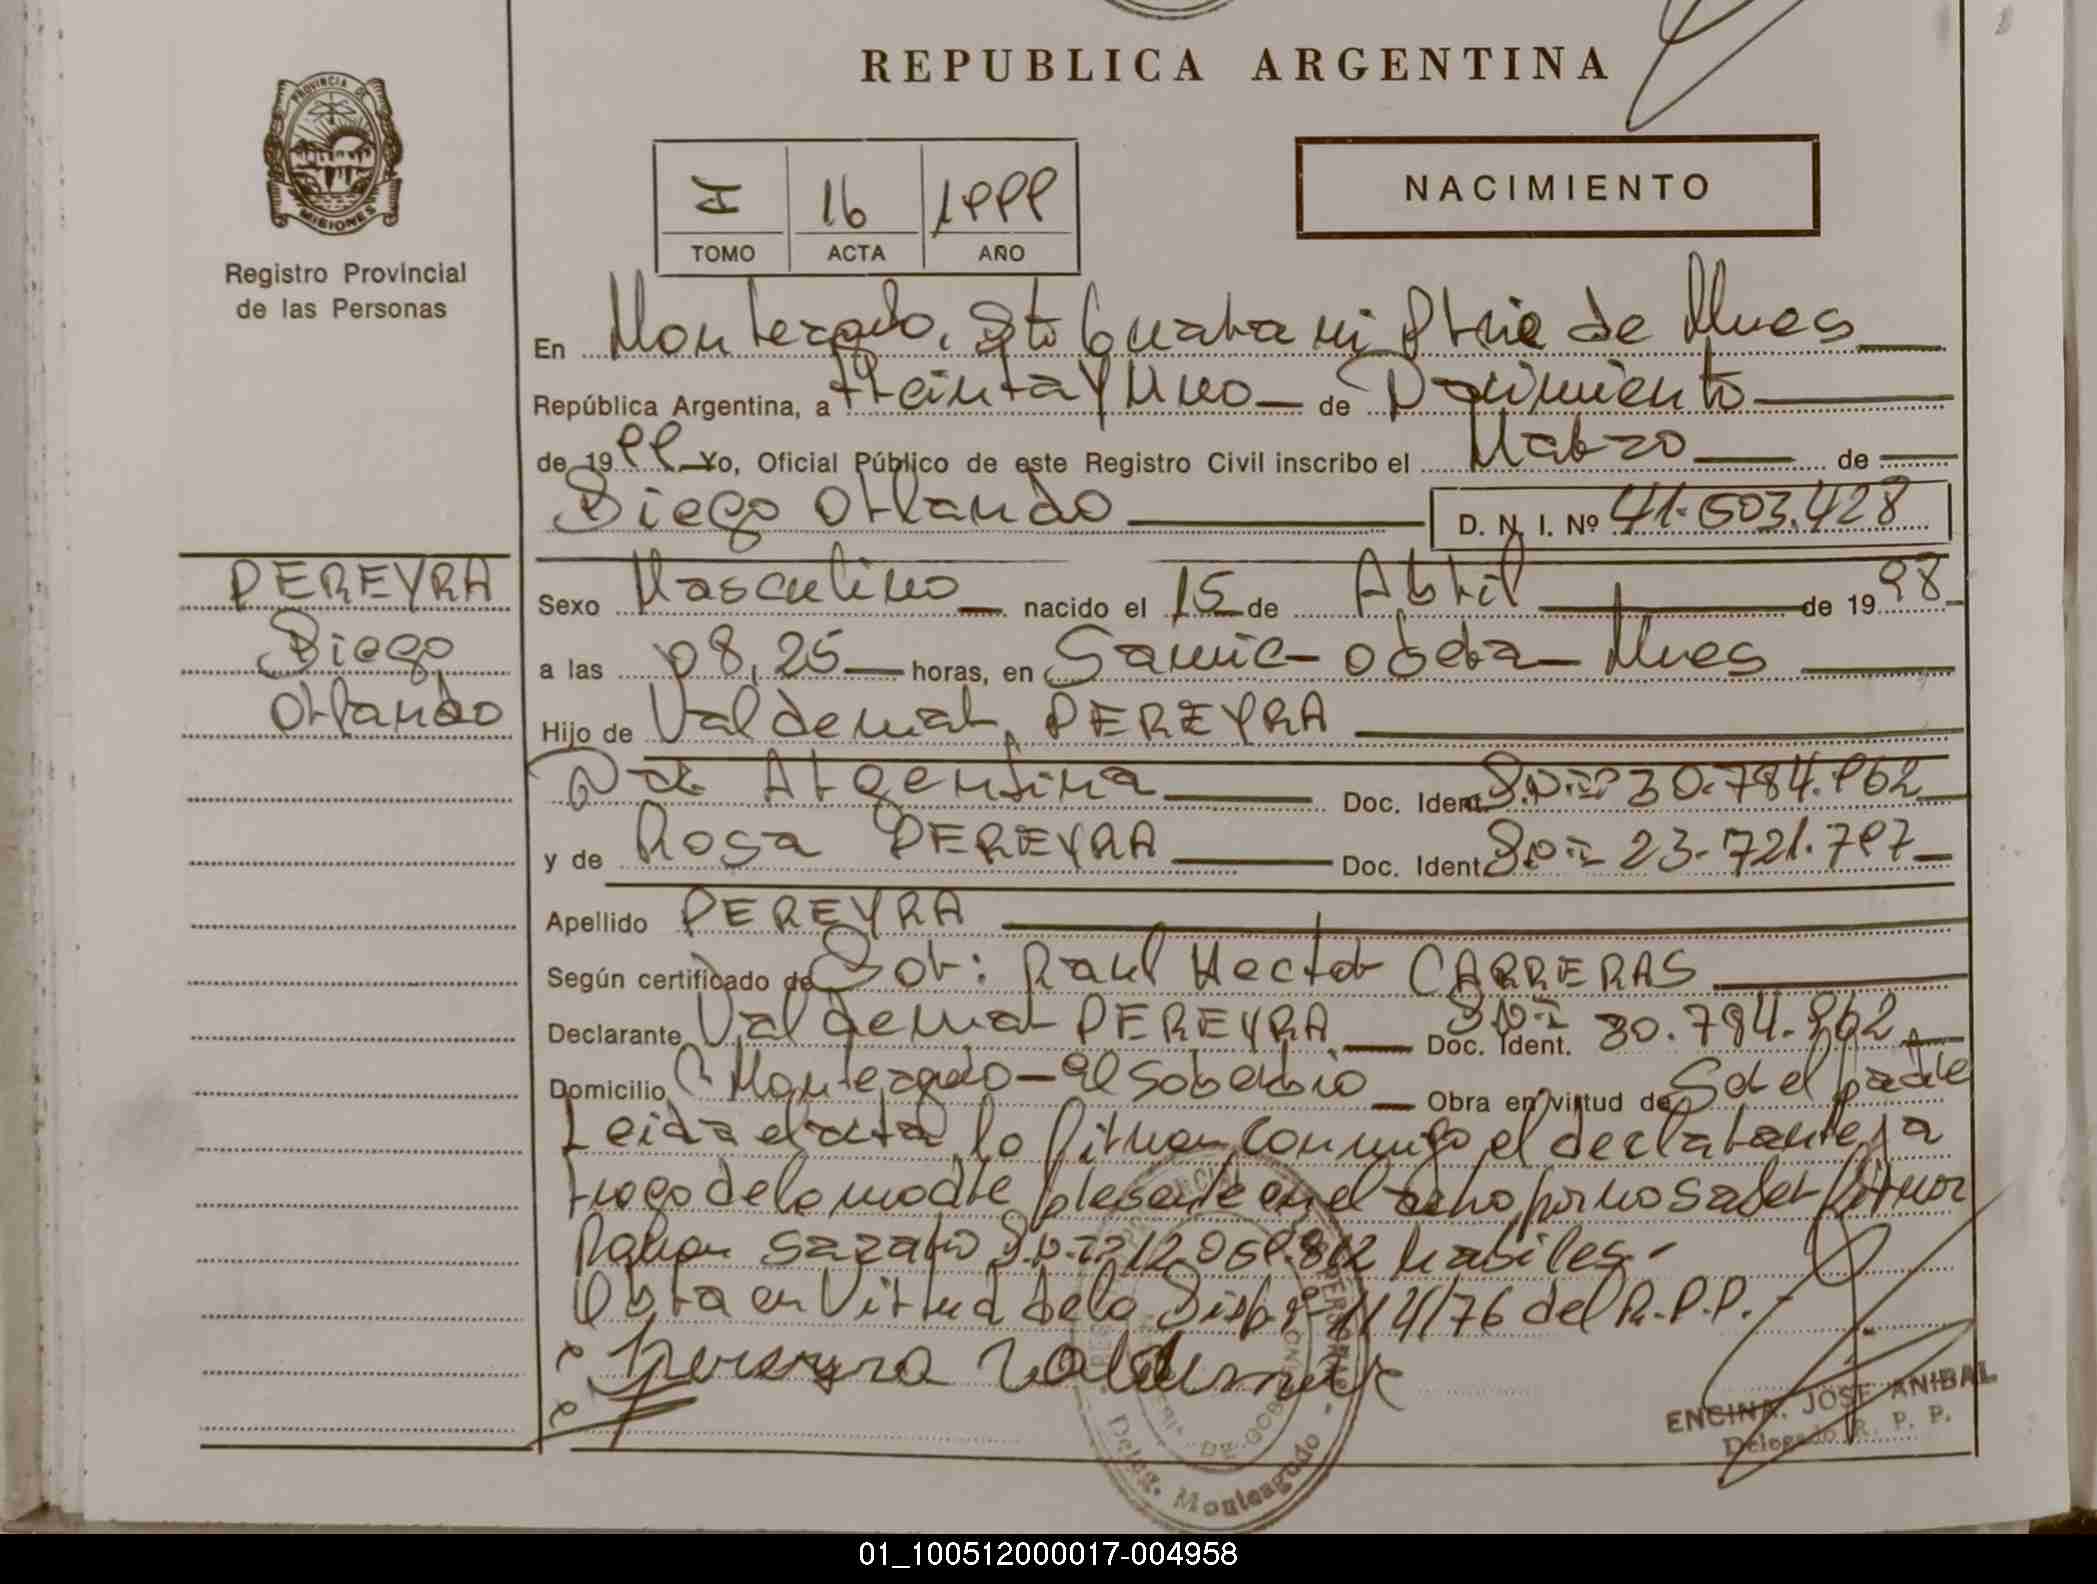 REPUBLICA ARGENTINA
PROVINCIA DE
MISIONES
Registro Provincial
de las Personas
I 16 1999
TOMO ACTA AÑO
NACIMIENTO
En Monteagudo, Dto Guarani Pcia de Mnes
República Argentina, a treinta y Uno de Nacimiento
de 1999 Yo, Oficial Público de este Registro Civil inscribo el Marzo de
Diego Orlando D. N. I. Nº 41.503.428
PEREYRA
Diego
Orlando
Sexo Masculino nacido el 15 de Abril de 1998
a las 08,25 horas, en Samic - obera - Mnes
Hijo de Valdemar PEREYRA
Nac Argentina Doc. Ident. D.N.I. 30.784.962
y de Rosa PEREYRA Doc. Ident. D.N.I 23.721.797
Apellido PEREYRA
Según certificado de Dor: Raul Hector CARRERAS
Declarante Valdemar PEREYRA Doc. Ident. D.N.I 30.784.962
Domicilio Monteagudo - El Soberbio Obra en virtud de Ser el padre
Leida el acta, lo firman conmigo, el declarante, a
ruego de la madre presente en el acto, por no saber firmar
Ramon D.N.I. habiles.-
Obra en Virtud de la Disp. Nº 114/76 del R.P.P. -
Pereyra Valdemar
ENCINA, JOSE ANIBAL
Delegado R. P. P.
Deleg. Monteagudo
01_100512000017-004958